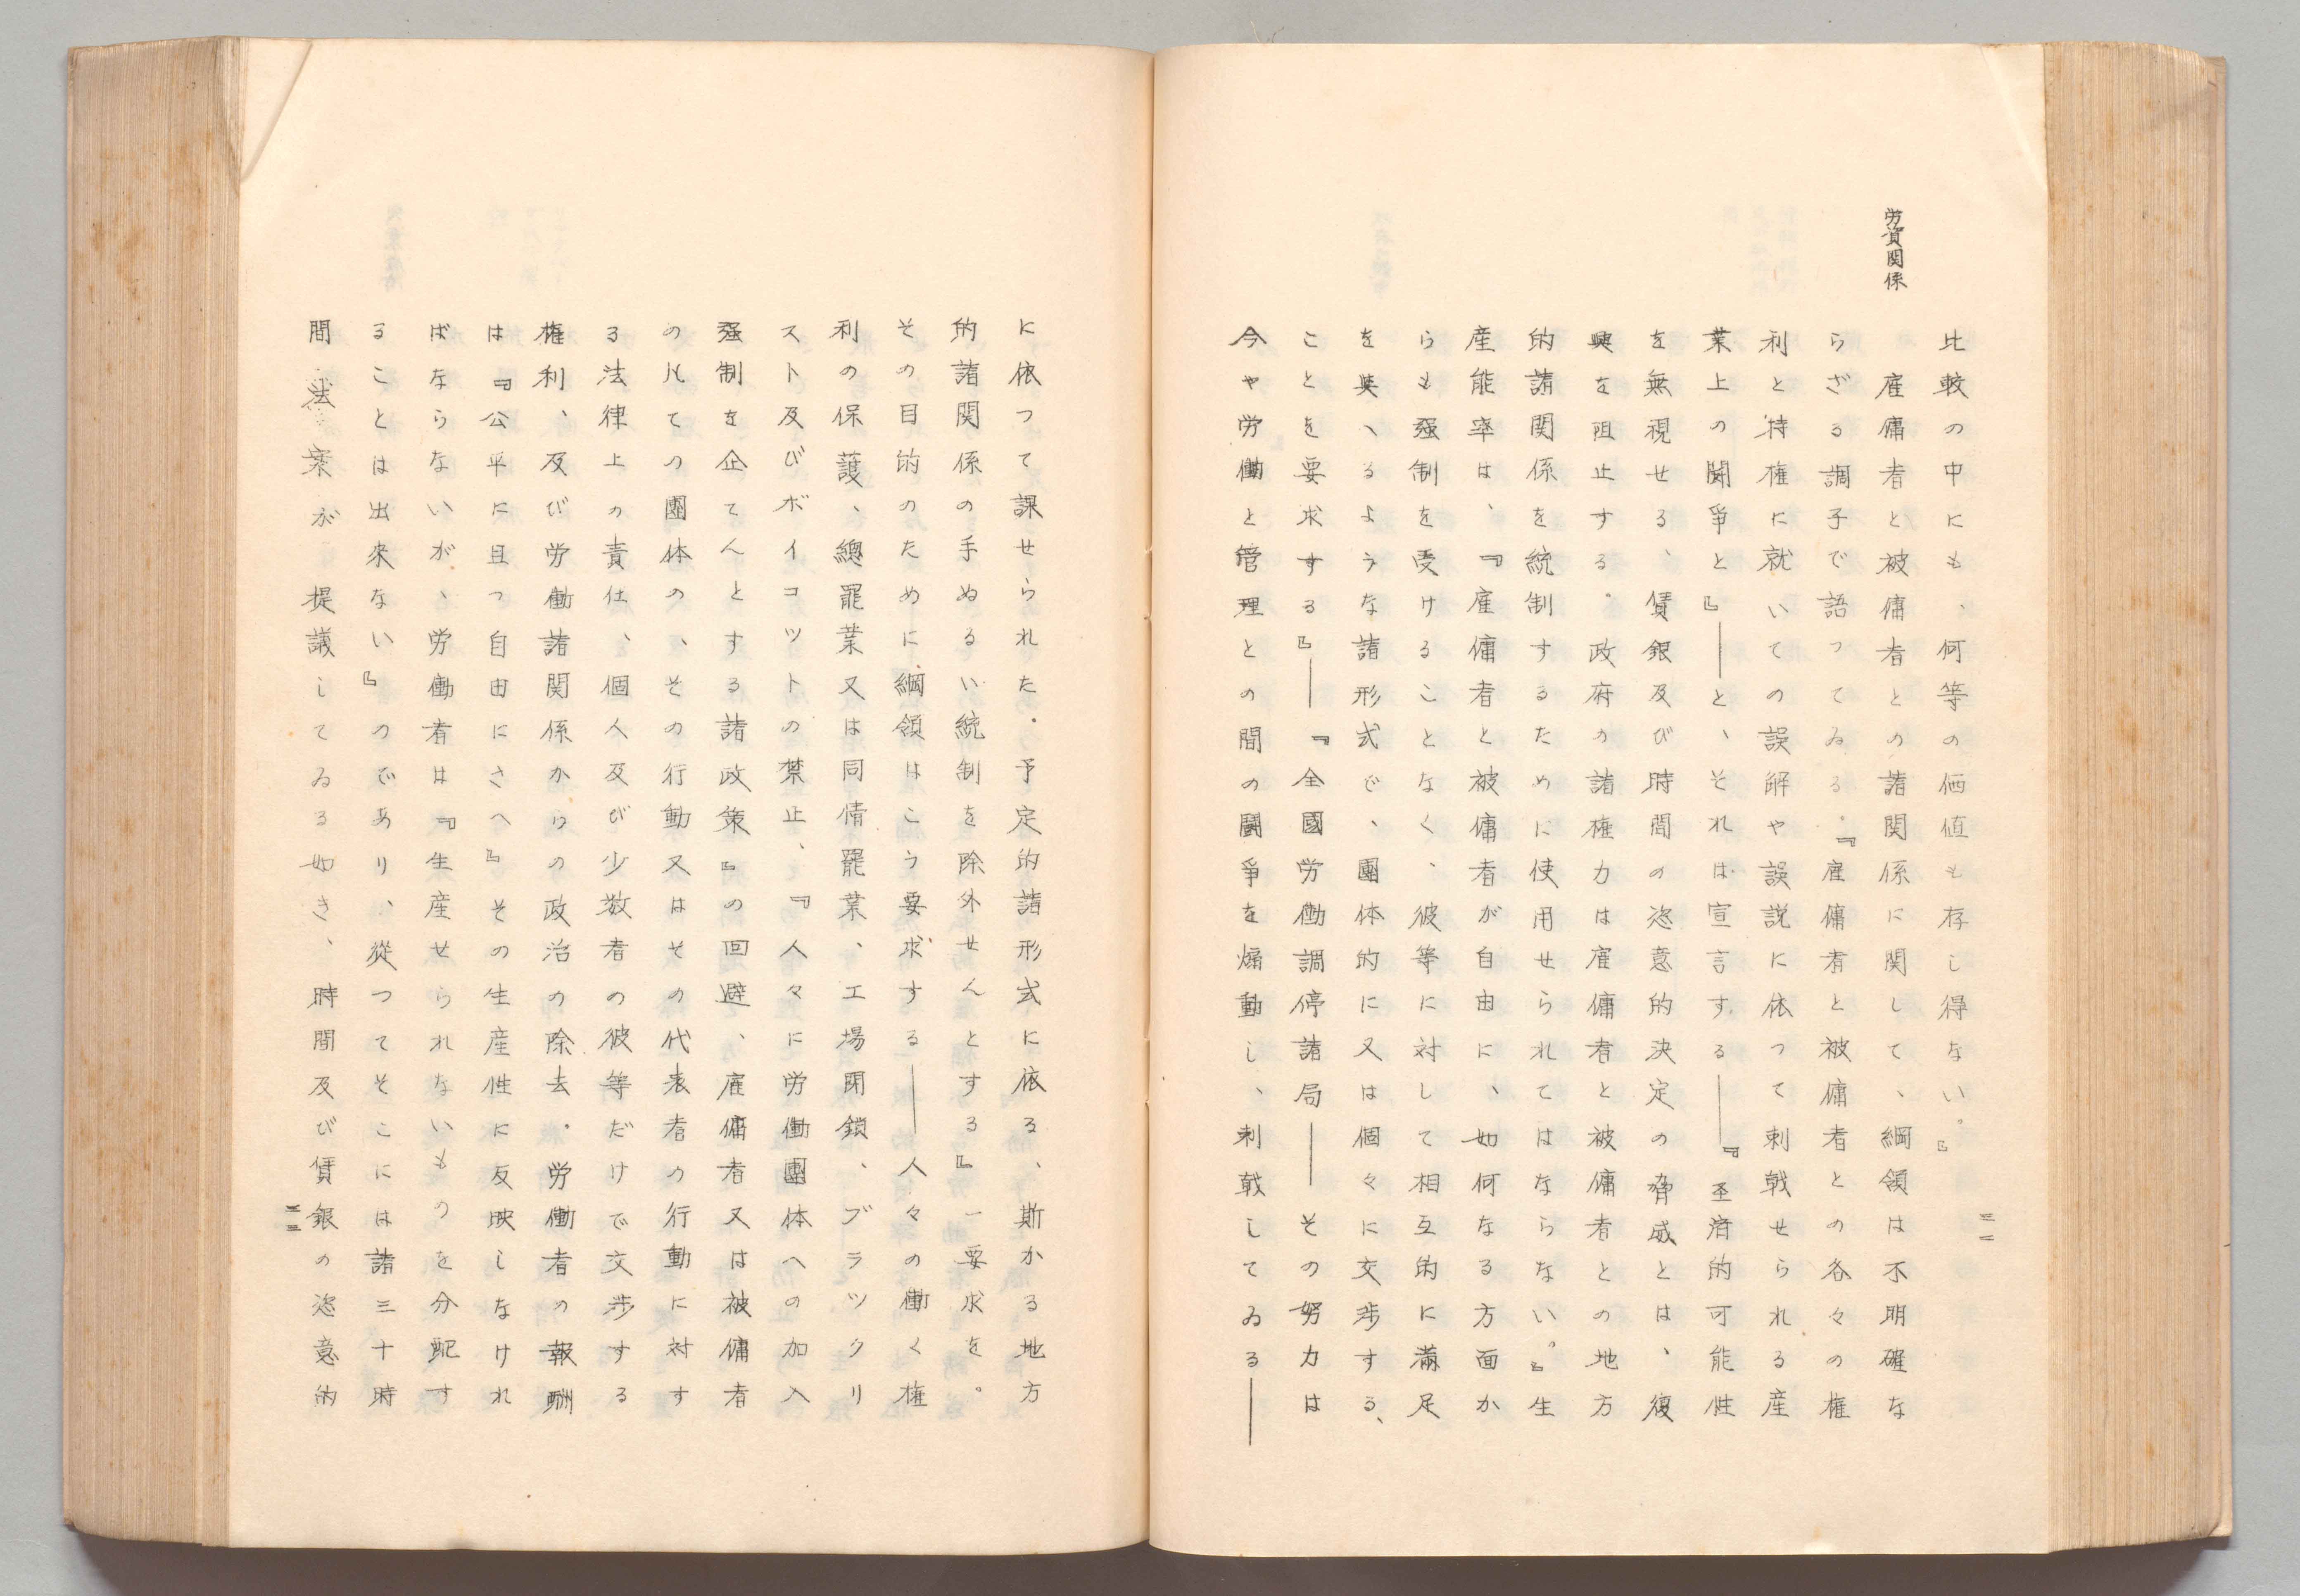 労資関係
比較の中にも、何等の価値も存し得ない。』
雇傭者と被傭者との諸関係に関して、綱領は不明確な
らざる調子で語つてゐる。『雇傭者と被傭者との各々の権
利と特権に就いての誤解や誤説に依つて刺戟せられる産
業上の闘争と』――と、それは宣言する――『经済的可能性
を無視せる、賃銀及び時間の恣意的決定の脅威とは、復
興を阻止する。政府の諸権力は雇傭者と被傭者との地方
的諸関係を統制するために使用せられてはならない。』生
産能率は、『雇傭者と被傭者が自由に、如何なる方面か
らも强制を受けることなく、彼等に対して相互的に満足
を與へるような諸形式で、團体的に又は個々に交渉する、
ことを要求する』――『全國労働調停諸局――その努力は
今や労働と管理との間の闘爭を煽動し、刺戟してゐる――
三二
に依つて課せられた・予定的諸形式に依る、斯かる地方
的諸関係の手ぬるい統制を除外せんとする』ー要求を。
その目的のために、綱領はこう要求する――人々の働く権
利の保護、總罷業又は同情罷業、工場閉鎖、ブラックリ
スト及びボイコツトの禁止、『人々に労働團体への加入
强制を企てんとする諸政策』の回避、雇傭者又は被傭者
の凡ての團体の、その行動又はその代表者の行動に対す
る法律上の責任、個人及び少数者の彼等だけで交渉する
権利、及び労働諸関係からの政治の除去。労働者の報酬
は『公平に且つ自由にさへ』その生産性に反映しなけれ
ばならないが、労働者は『生産せられないものを分配す
ることは出来ない』のであり、從つてそこには諸三十時
間法案が提議してゐる如き、時間及び賃銀の恣意的
三三